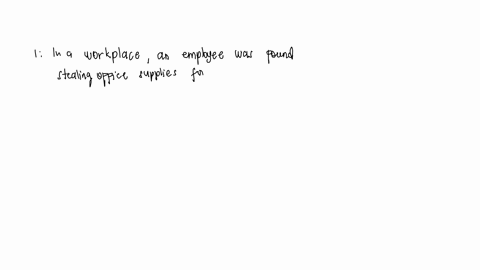 1: In a workplace, an employee was found
stealing office supplies for